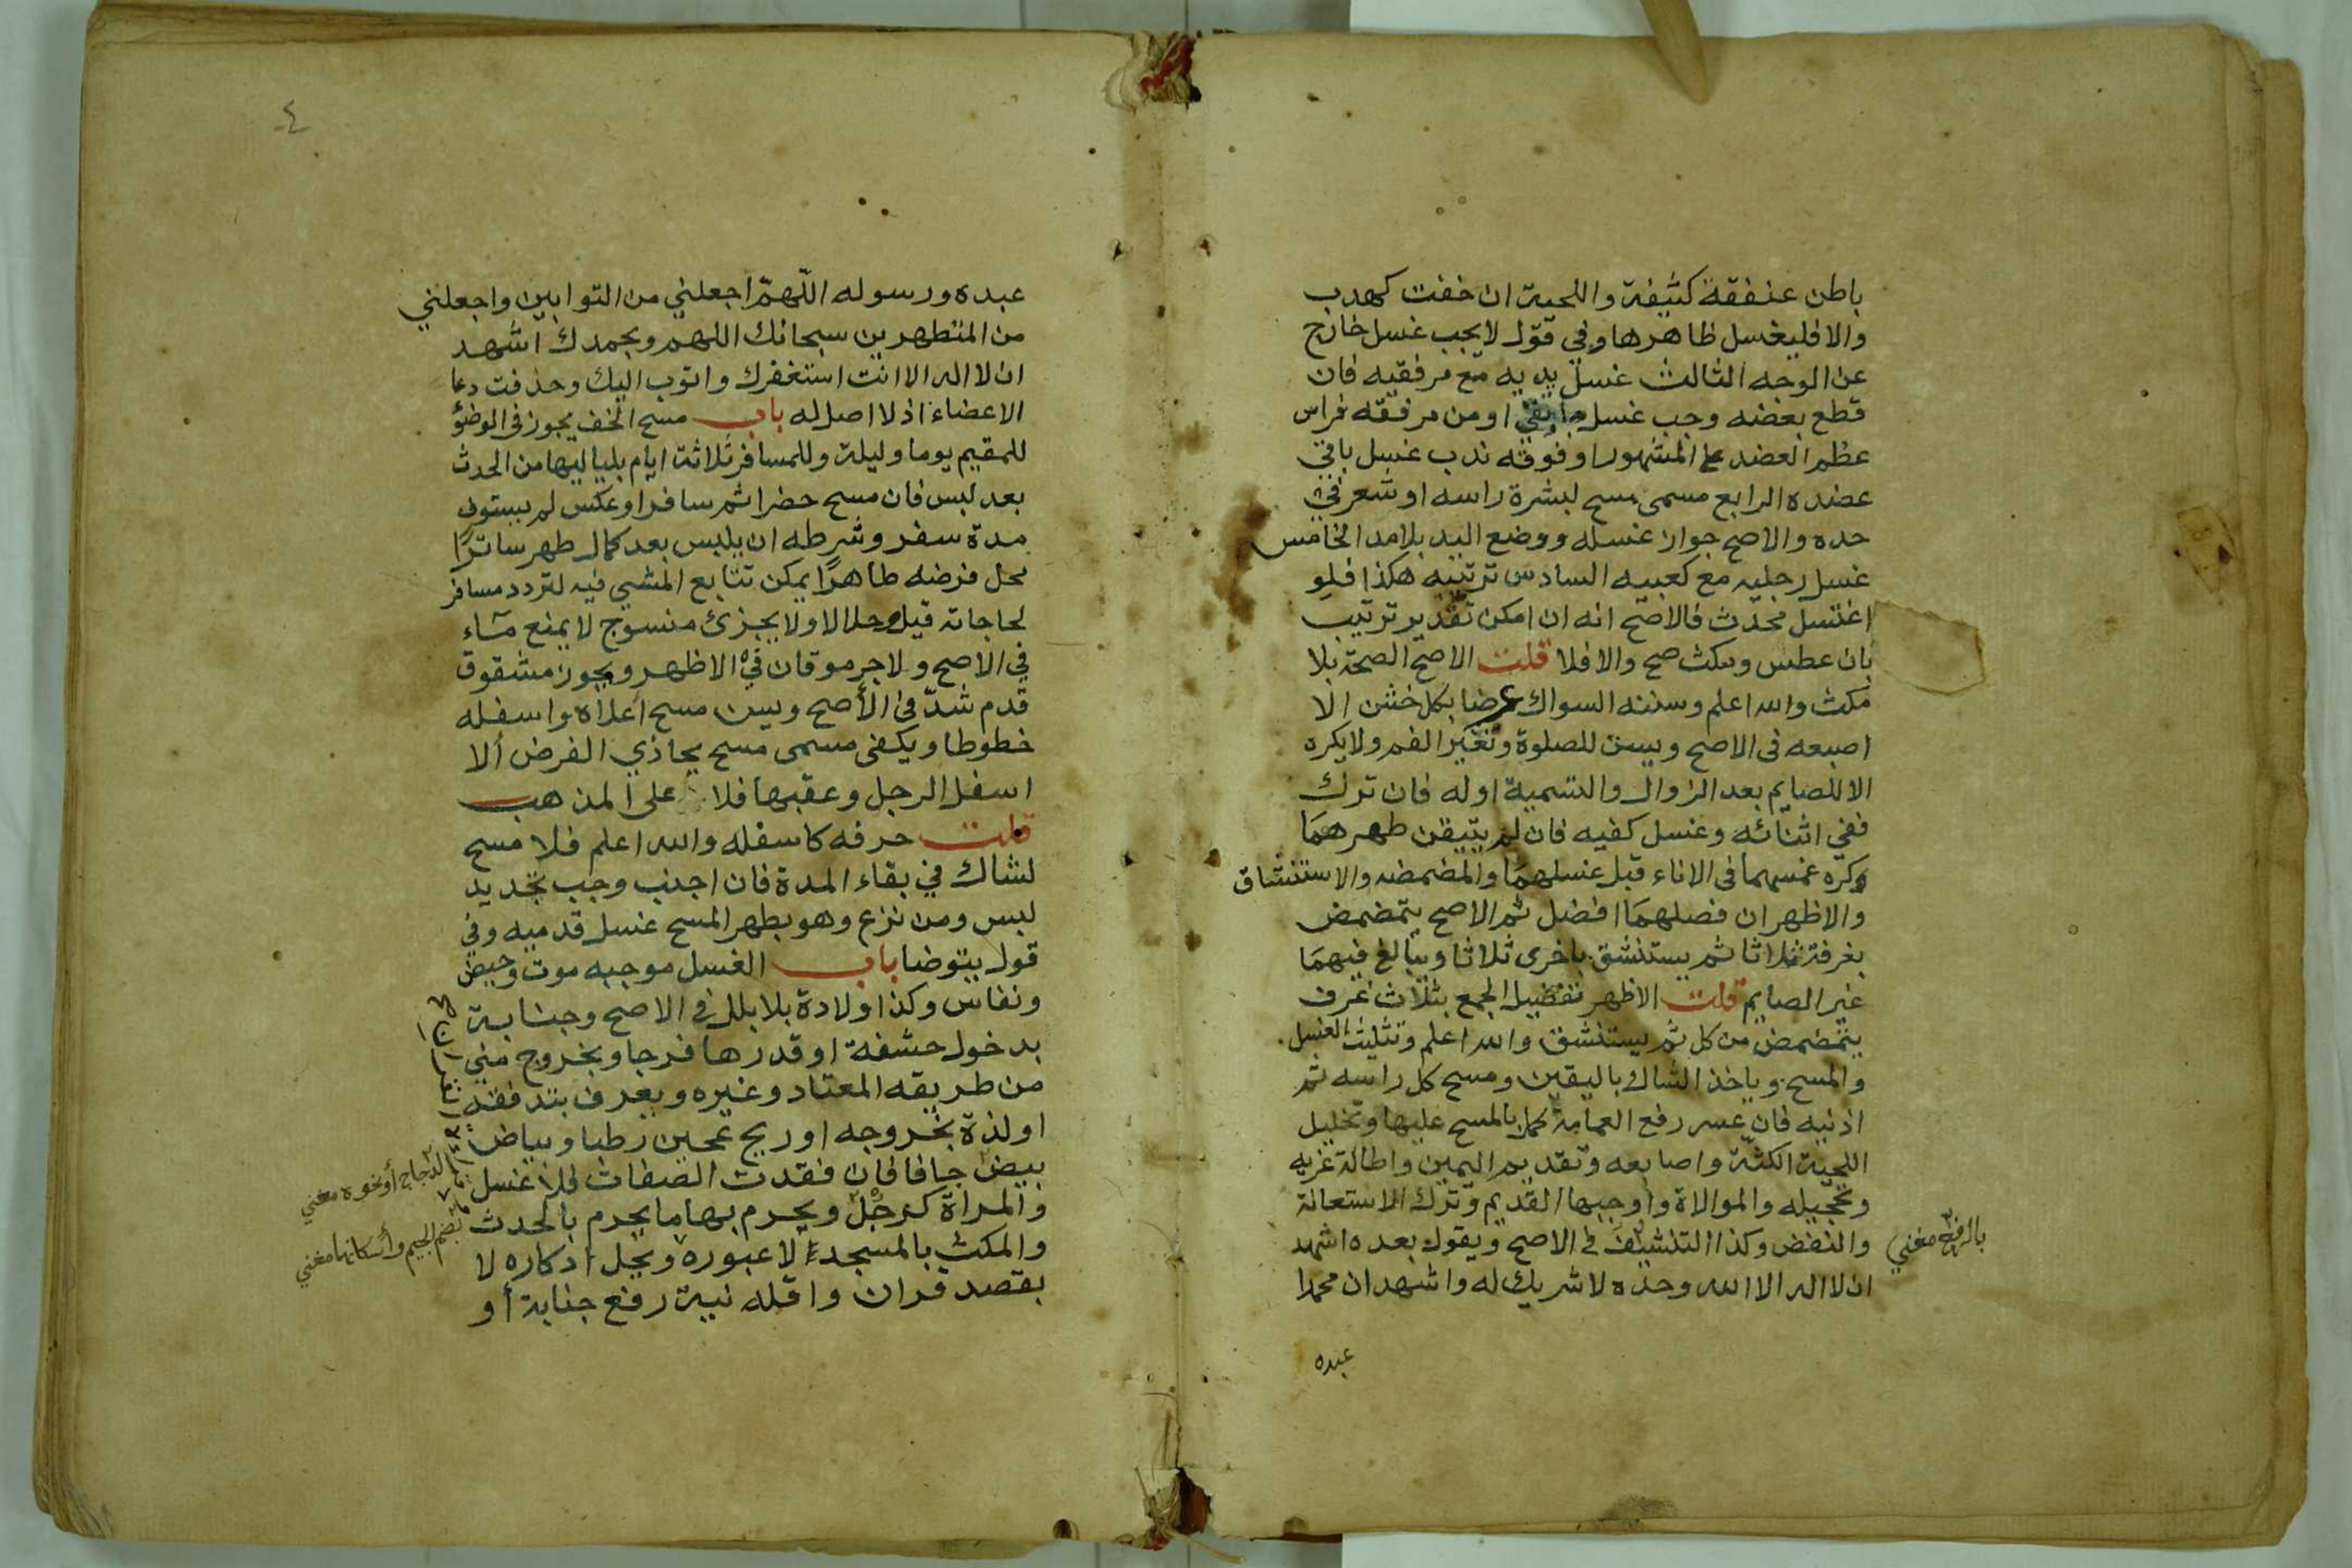 باطن عنفقة كثيفة واللحية ان خفت كهدب
والا فليغسل ظاهرها وفي قول لا يجب غسل خارج
عن الوجه الثالث غسل يديه مع مرفقيه فان
قطع بعضه وجب غسل ما بقي او من مرفقه فراس
عظم العضد على المشهور او فوقه ندب غسل باقي
عضده الرابع مسمى مسح لبشرة راسه او شعر في
حده والاصح جواز غسله ووضع اليد بلا مد الخامس
غسل رجليه مع كعبيه السادس ترتيبه هكذا فلو
اغتسل محدث فالاصح انه ان امكن تقدير ترتيب
بان عطس ومكث صح والا فلا قلت الاصح الصحة بلا
مكث والله اعلم وسننه السواك عرضا بكل خشن الا
اصبعه فى الاصح ويسن للصلوة وتغير الفم ولا يكره
الا للصايم بعد الزوال والتسمية اوله فان ترك
ففي اثنائه وغسل كفيه فان لم يتيقن طهرهما
وكره غمسهما فى الاناء قبل غسلهما والمضمضه والاستنشاق
والاظهر ان فصلهما افضل ثم الاصح يتمضمض
بغرفة ثلاثا ثم يستنشق باخرى ثلاثا ويبالغ فيهما
غير الصايم قلت الاظهر تفضيل الجمع بثلاث غرف
يتمضمض من كل ثم يستنشق والله اعلم وتثليث الغسل
والمسح وياخذ الشاك باليقين ومسح كل راسه ثم
اذنيه فان عسر رفع العمامة كمل بالمسح عليها وتخليل
اللحية الكثة واصابعه وتقديم اليمين واطالة غرته
وتحجيله والموالاة واوجبها القديم وترك الاستعانة
والنفض وكذا التنشيف فى الاصح ويقول بعده اشهد
بالرفع مغني
ان لا اله الا الله وحده لا شريك له واشهد ان محمدا
عبده
٤
عبده ورسوله اللهمّ اجعلني من التوابين واجعلني
من المتطهرين سبحانك اللهم وبحمدك اشهد
ان لا اله الا انت استغفرك واتوب اليك وحذفت دعا
الاعضاء اذ لا اصل له باب مسح الخف يجوز في الوضؤ
للمقيم يوما وليلة وللمسافر ثلاثة ايام بلياليها من الحدث
بعد لبس فان مسح حضرا ثم سافر او عكس لم يستوف
مدة سفر وشرطه ان يلبس بعد كمال طهر ساترًا
محل فرضه طاهرًا يمكن تتابع المشي فيه لتردد مسافر
لحاجاته قيل وحلالا ولا يجزئ منسوج لا يمنع مآء
في الاصح ولا جرموقان في الاظهر ويجوز مشقوق
قدم شدّ في الأصح ويسن مسح اعلاه واسفله
خطوطا ويكفى مسمى مسح يحاذي الفرض ألا
اسفل الرجل وعقبها فلا على المذهب
قلت حرفه كاسفله والله اعلم فلا مسح
لشاك في بقاء المدة فان اجنب وجب تجديد
لبس ومن نزع وهو بطهر المسح غسل قدميه وفي
قول يتوضا باب الغسل موجبه موت وحيض
ونفاس وكذا ولادة بلا بلل في الاصح وجنابة
بدخول حشفة او قدرها فرجا وبخروج مني
من طريقه المعتاد وغيره ويعرف بتدفقه
او لذة بخروجه او ريح عجين رطبا وبياض
بيض جافا فان فقدت الصفات فلا غسل
الدجاج أو نحوه مغني
والمراة كرجُل ويحرم بها ما يحرم بالحدث
بضم الجيم وأسكانها مغني
والمكث بالمسجد لا عبوره ويحل اذكاره لا
بقصد قران واقله نية رفع جنابة أو